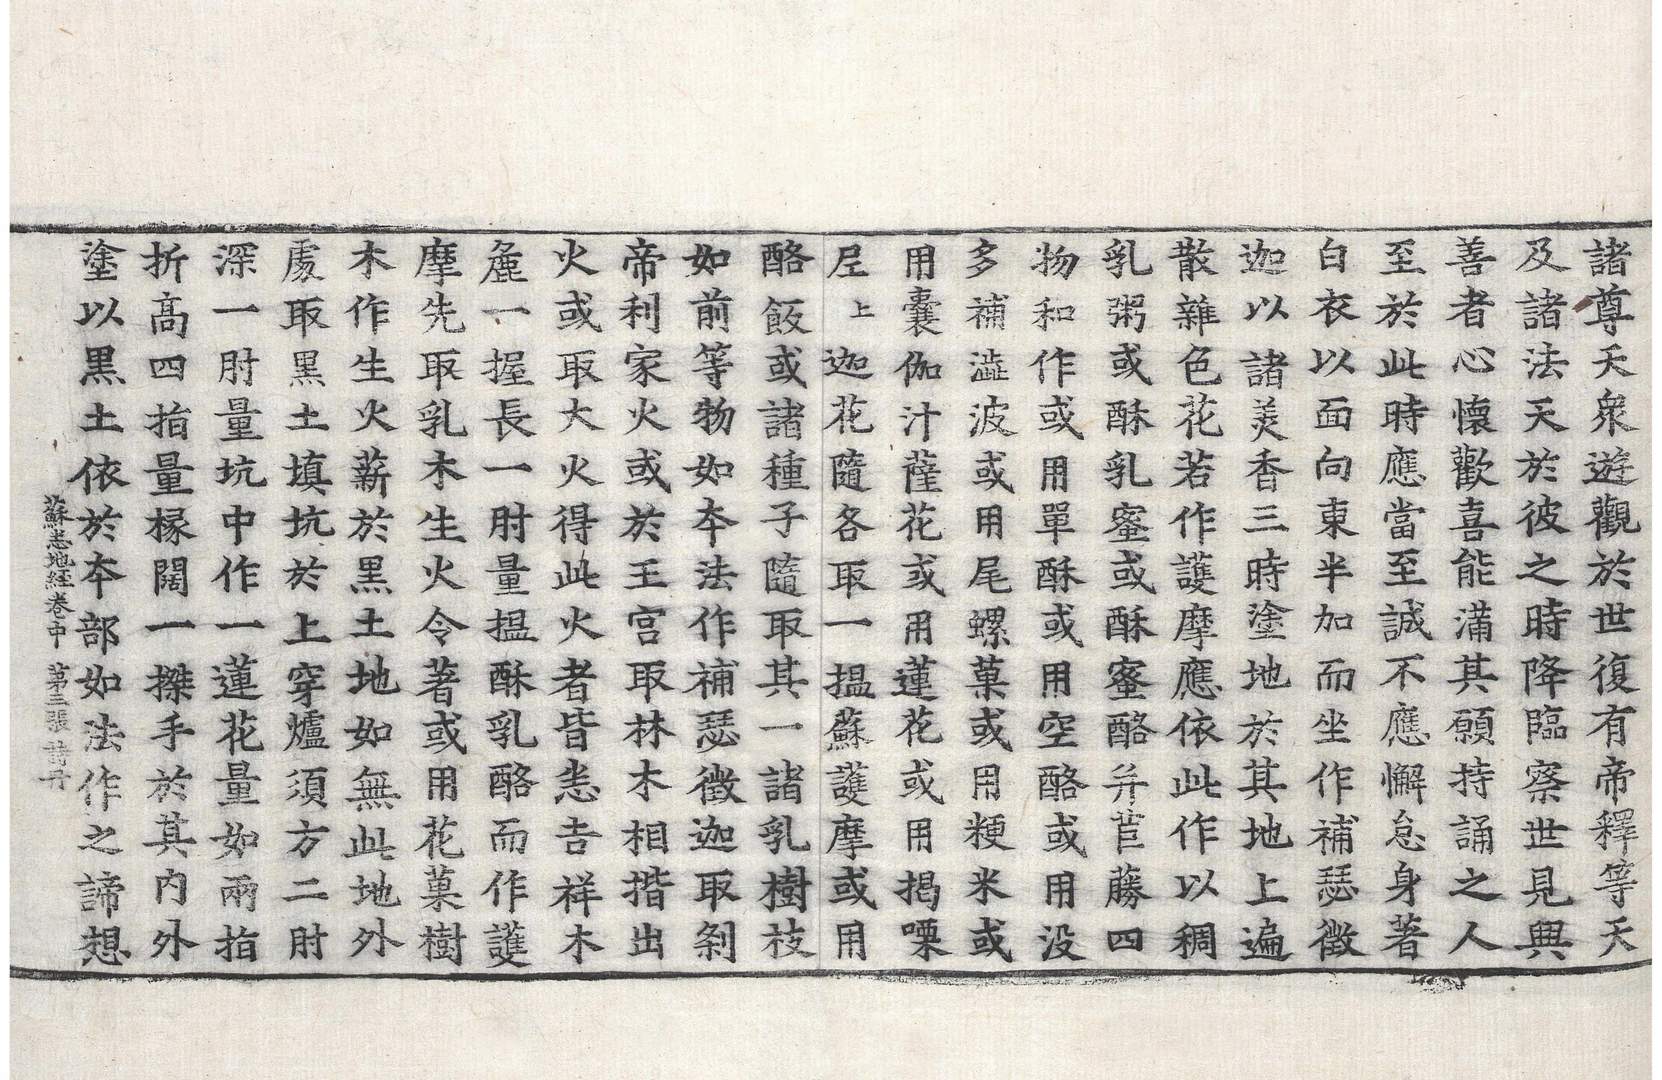 諸尊天衆遊觀於世復有帝釋等天
及諸法天於彼之時降臨察世見興
善者心懷歡喜能滿其願持誦之人
至於此時應當至誠不應懈怠身著
白衣以面向東半加而坐作補瑟徵
迦以諸羙香三時塗地於其地上遍
散雜色花若作護摩應依此作以稠
乳粥或酥乳蜜或酥蜜酪并苣藤四
物和作或用單酥或用空酪或用没
多補澁波或用尾螺菓或用粳米或
用囊伽汁薩花或用蓮花或用揭㗚
𡰱上迦花隨各取一揾蘇護摩或用
酪飯或諸種子隨取其一諸乳樹枝
如前等物如夲法作補瑟徵迦取剎
帝利家火或於王宮取林木相揩出
火或取大火得此火者皆悉吉祥木
麁一握長一肘量揾酥乳酪而作護
摩先取乳木生火令著或用花菓樹
木作生火薪於黒土地如無此地外
處取黒土填坑於上穿爐須方二肘
深一肘量坑中作一蓮花量如兩指
折高四指量椽闊一搩手於其内外
塗以黒土依於夲部如法作之諦想
蘇悉地経卷中 苐三張 詩丹